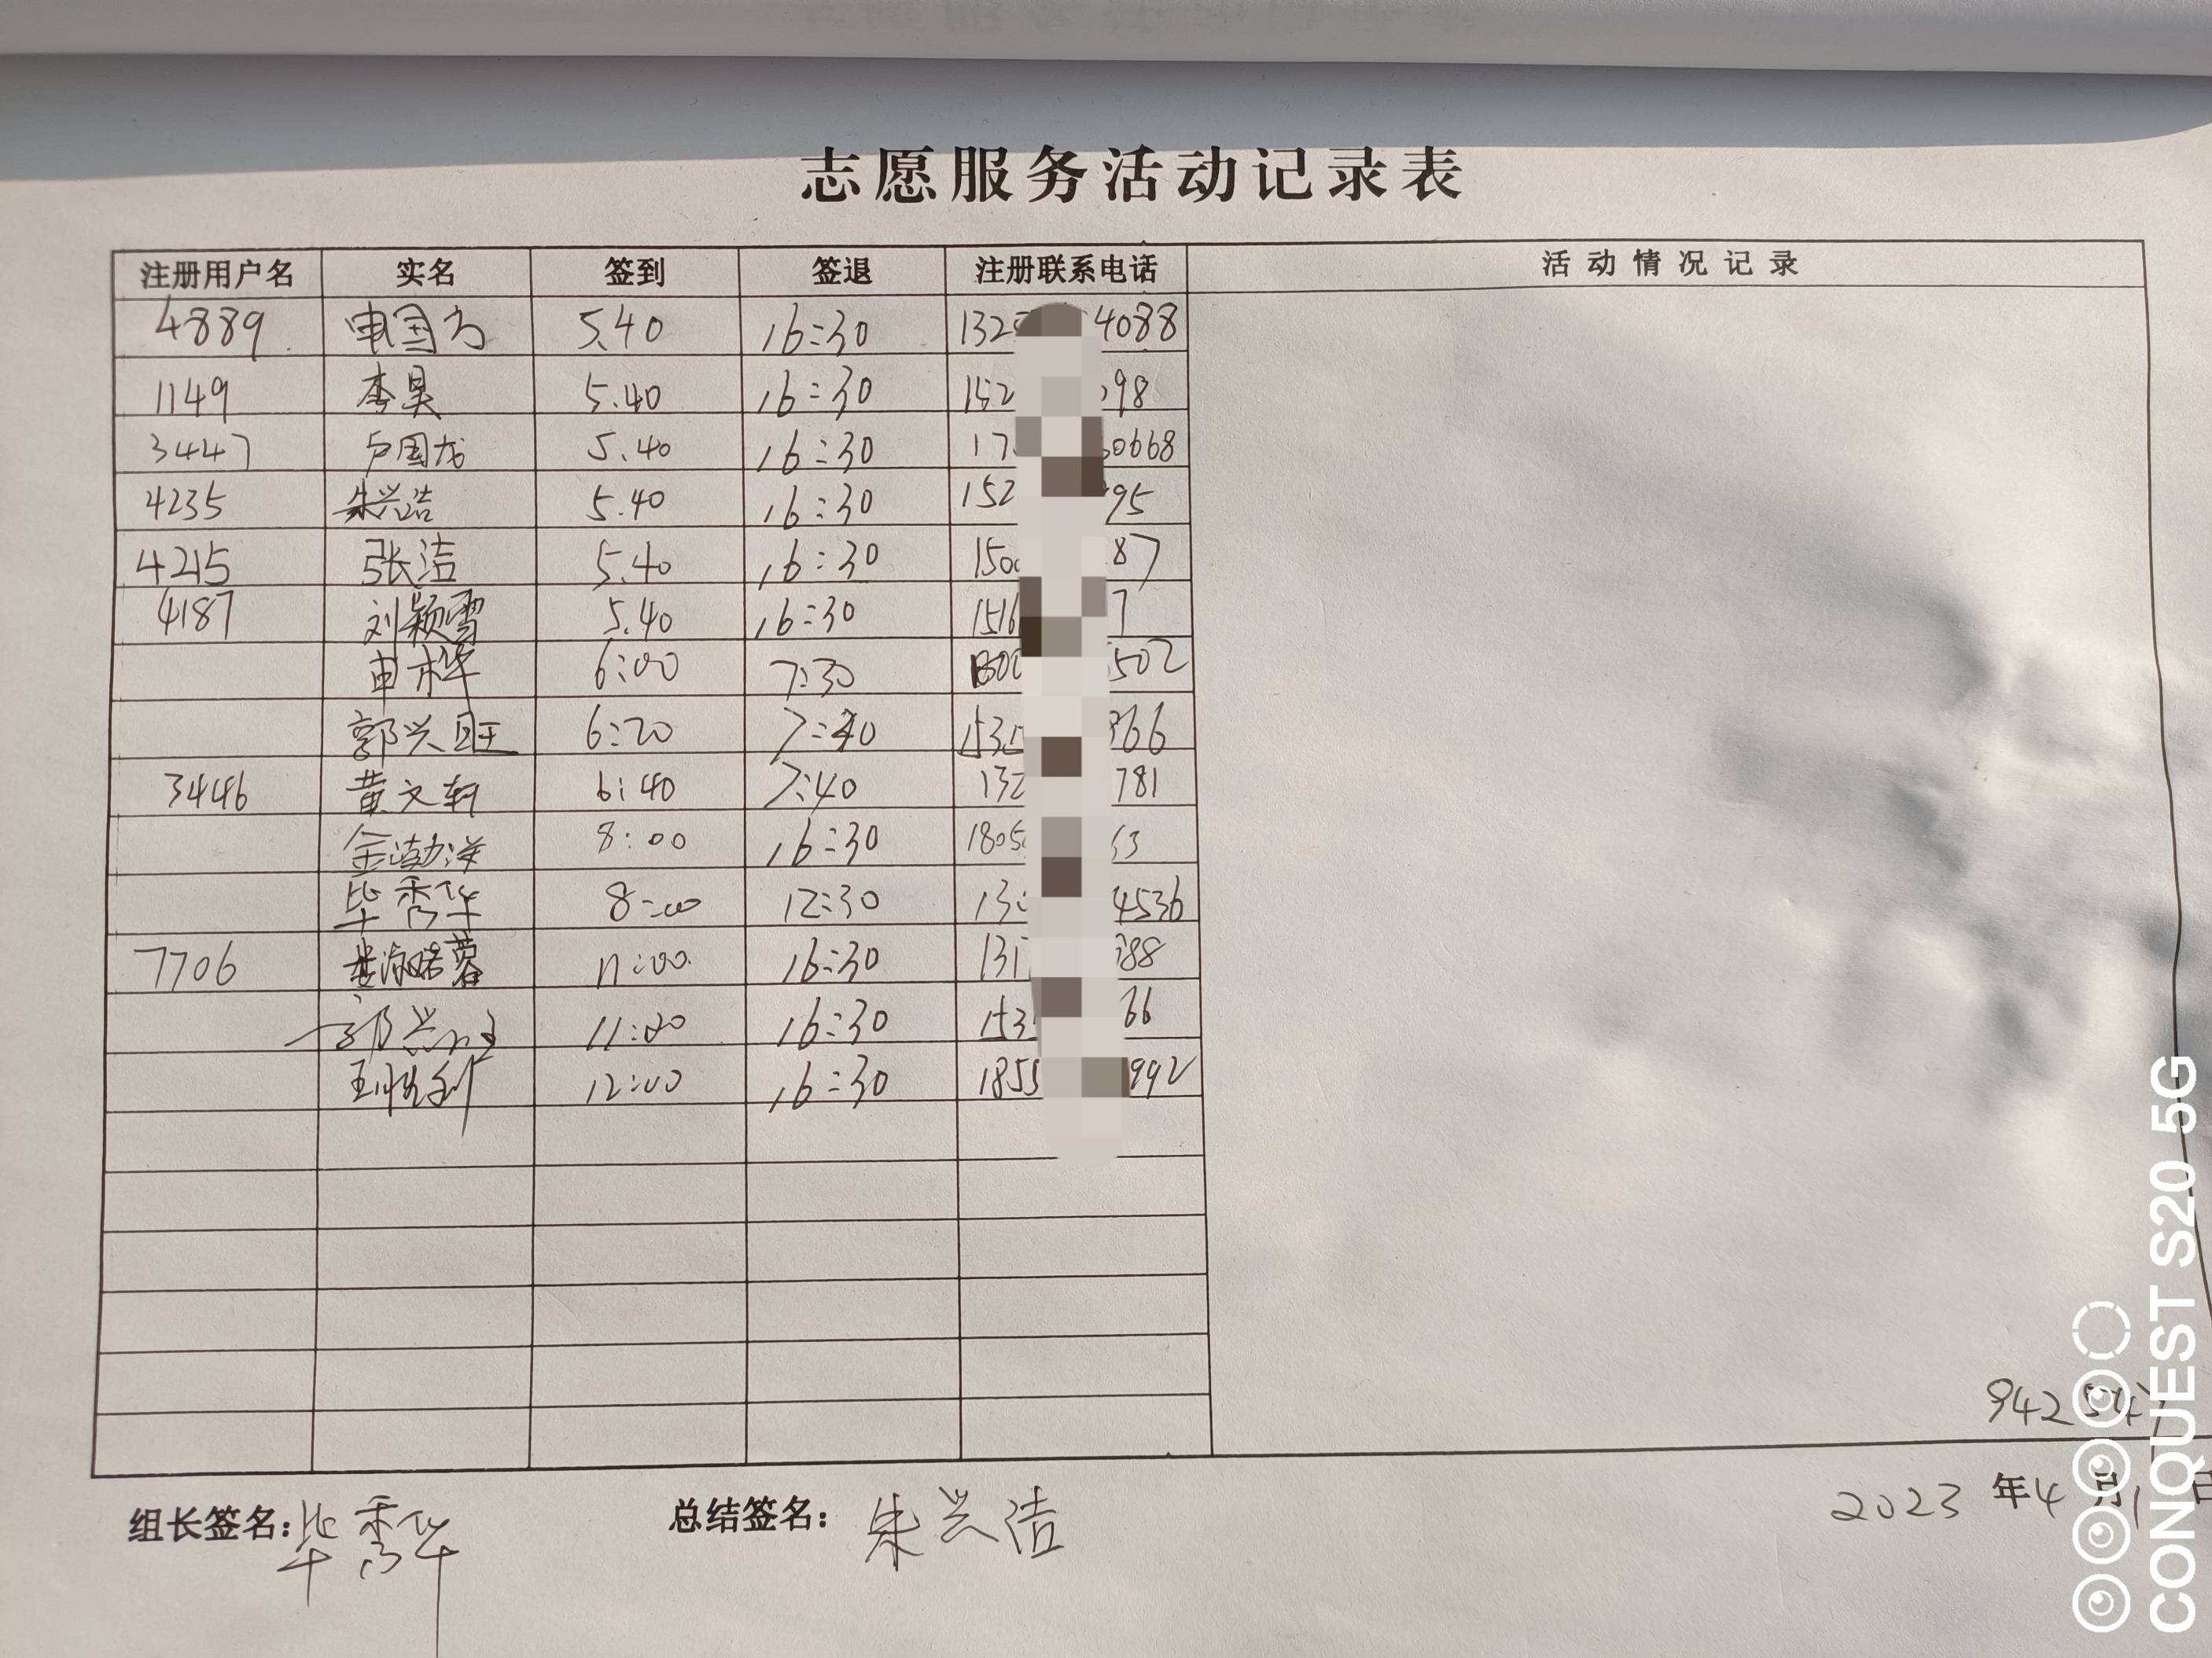 志愿服务活动记录表
注册用户名 实名 签到 签退 注册联系电话 活动情况记录
4889 申国方 5.40 16:30 132 4088
1149 李昊 5.40 16:30 152 98
3447 卢国龙 5.40 16:30 17 0668
4235 朱兴洁 5.40 16:30 152 95
4215 张洁 5.40 16:30 150 87
4187 刘颖雪 5.40 16:30 1516 7
申桦 6:00 7:30 1300 502
郭兴旺 6:20 7:40 153 366
3446 黄文轩 6:40 7:40 132 781
金渤洋 8:00 16:30 1805 63
毕秀华 8:00 12:30 130 4536
7706 11:00 16:30 131 388
郭兴旺 11:20 16:30 153 66
12:00 16:30 1855 992
942
组长签名:毕秀华 总结签名:朱兴洁 2023年4月1日
CONQUEST S20 5G